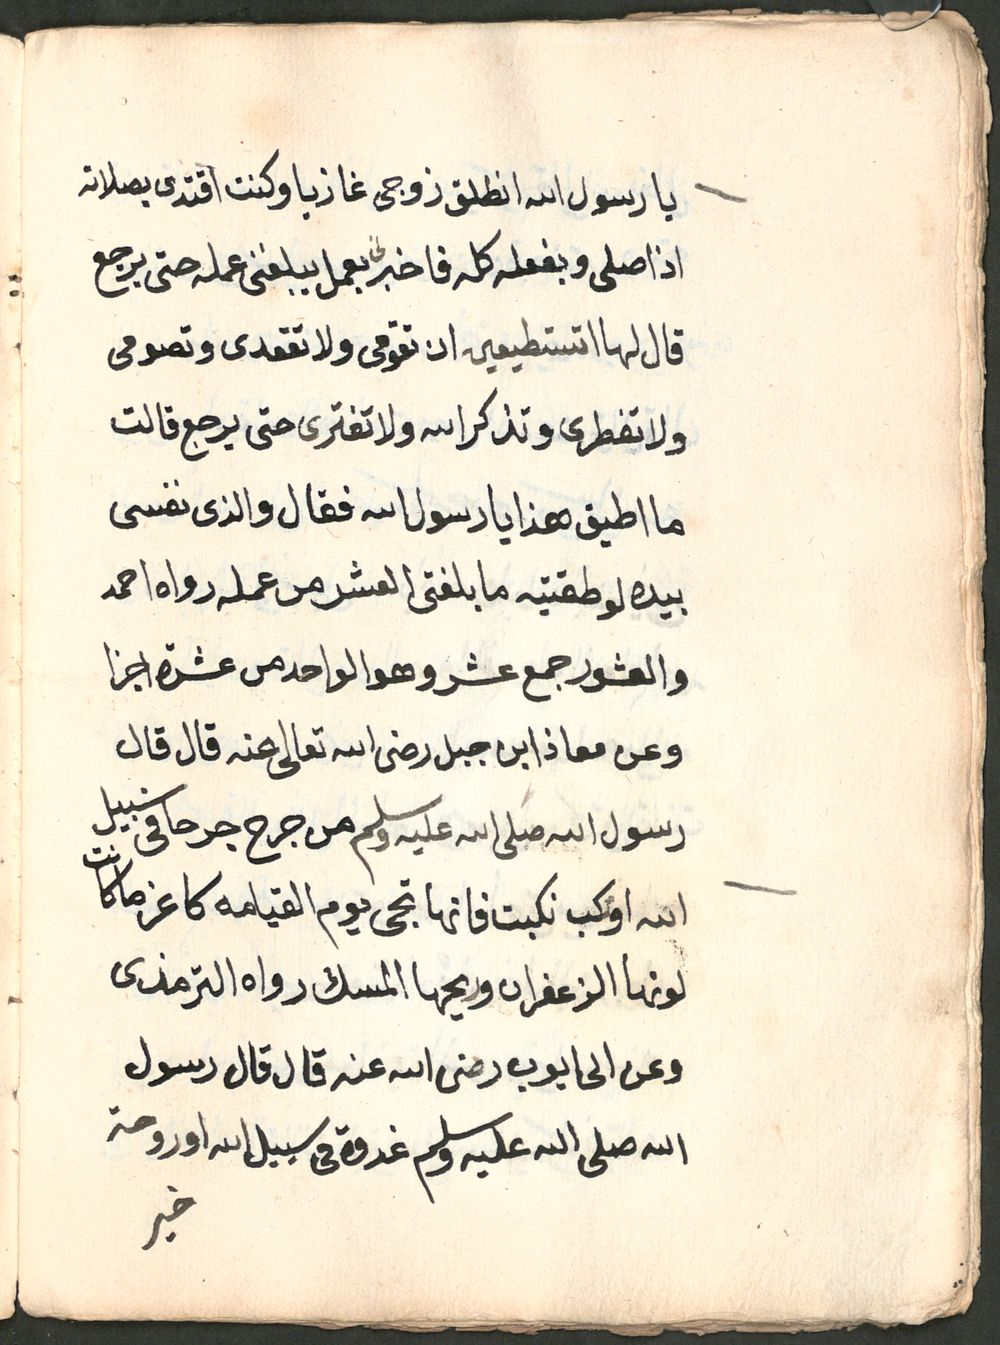 يا رسول الله انطلق زوجى غازيا وكنت اقتدى بصلاته
اذا صلى وبفعله كله فاخبرنى بعمل يبلغنى عمله حتى يرجع
قال لها اتستطيعين ان تقومى ولا تقعدى وتصومى
ولا تفطرى وتذكر الله ولا تفترى حتى يرجع قالت
ما اطيق هذا يا رسول الله فقال والذى نفسى
بيده لو طقتيه ما بلغتى العشر من عمله رواه احمد
والعشور جمع عشر وهو الواحد من عشرة اجزا
وعن معاذ ابن جبل رضى الله تعالى عنه قال قال
رسول الله صلى الله عليه وسلم من جرح جرحا فى سبيل
الله اوكب نكبت فانها تجى يوم القيامه كاغز ماكانت
لونها الزعفران وريحها المسك رواه الترمذى
وعن ابى ايوب رضى الله عنه قال قال رسول
الله صلى الله عليه وسلم غدوة فى سبيل الله اوروحة
خير